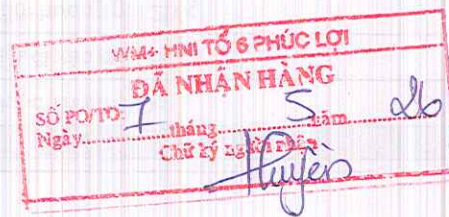 WM+ HNI TỔ 6 PHÚC LỢI
ĐÃ NHẬN HÀNG
SỐ PO/TO:
Ngày 7 tháng 5 năm 26
Chữ ký người nhận
Huyền